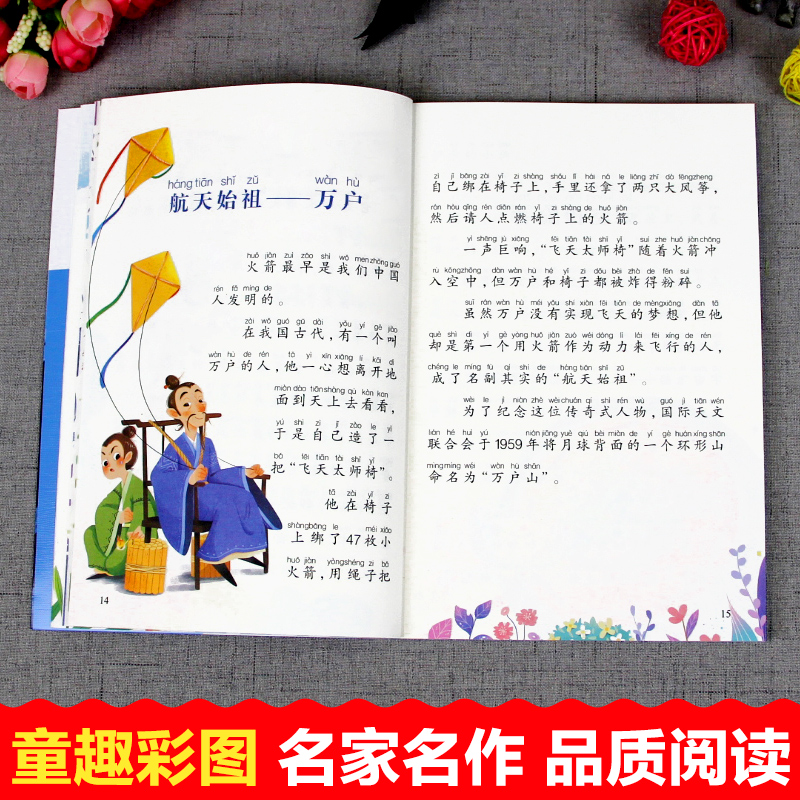 háng tiān shǐ zǔ wàn hù
航天始祖——万户
huǒ jiàn zuì zǎo shì wǒ men zhōng guó
火箭最早是我们中国
rén fā míng de
人发明的。
zài wǒ guó gǔ dài yǒu yí gè jiào
在我国古代，有一个叫
wàn hù de rén tā yì xīn xiǎng lí kāi dì
万户的人，他一心想离开地
miàn dào tiān shàng qù kàn kan
面到天上去看看，
yú shì zì jǐ zào le yì
于是自己造了一
bǎ fēi tiān tài shī yǐ
把“飞天太师椅”。
tā zài yǐ zi
他在椅子
shàng bǎng le méi xiǎo
上绑了47枚小
huǒ jiàn yòng shéng zi bǎ
火箭，用绳子把
14
zì jǐ bǎng zài yǐ zi shàng shǒu lǐ hái ná le liǎng zhī dà fēng zheng
自己绑在椅子上，手里还拿了两只大风筝，
rán hòu qǐng rén diǎn rán yǐ zi shàng de huǒ jiàn
然后请人点燃椅子上的火箭。
yì shēng jù xiǎng fēi tiān tài shī yǐ suí zhe huǒ jiàn chōng
一声巨响，“飞天太师椅”随着火箭冲
rù kōng zhōng dàn wàn hù hé yǐ zi dōu bèi zhà de fěn suì
入空中，但万户和椅子都被炸得粉碎。
suī rán wàn hù méi yǒu shí xiàn fēi tiān de mèng xiǎng dàn tā
虽然万户没有实现飞天的梦想，但他
què shì dì yī gè yòng huǒ jiàn zuò wéi dòng lì lái fēi xíng de rén
却是第一个用火箭作为动力来飞行的人，
chéng le míng fù qí shí de háng tiān shǐ zǔ
成了名副其实的“航天始祖”。
wèi le jì niàn zhè wèi chuán qí shì rén wù guó jì tiān wén
为了纪念这位传奇式人物，国际天文
lián hé huì yú nián jiāng yuè qiú bèi miàn de yí gè huán xíng shān
联合会于1959年将月球背面的一个环形山
mìng míng wéi wàn hù shān
命名为“万户山”。
15
童趣彩图 名家名作 品质阅读